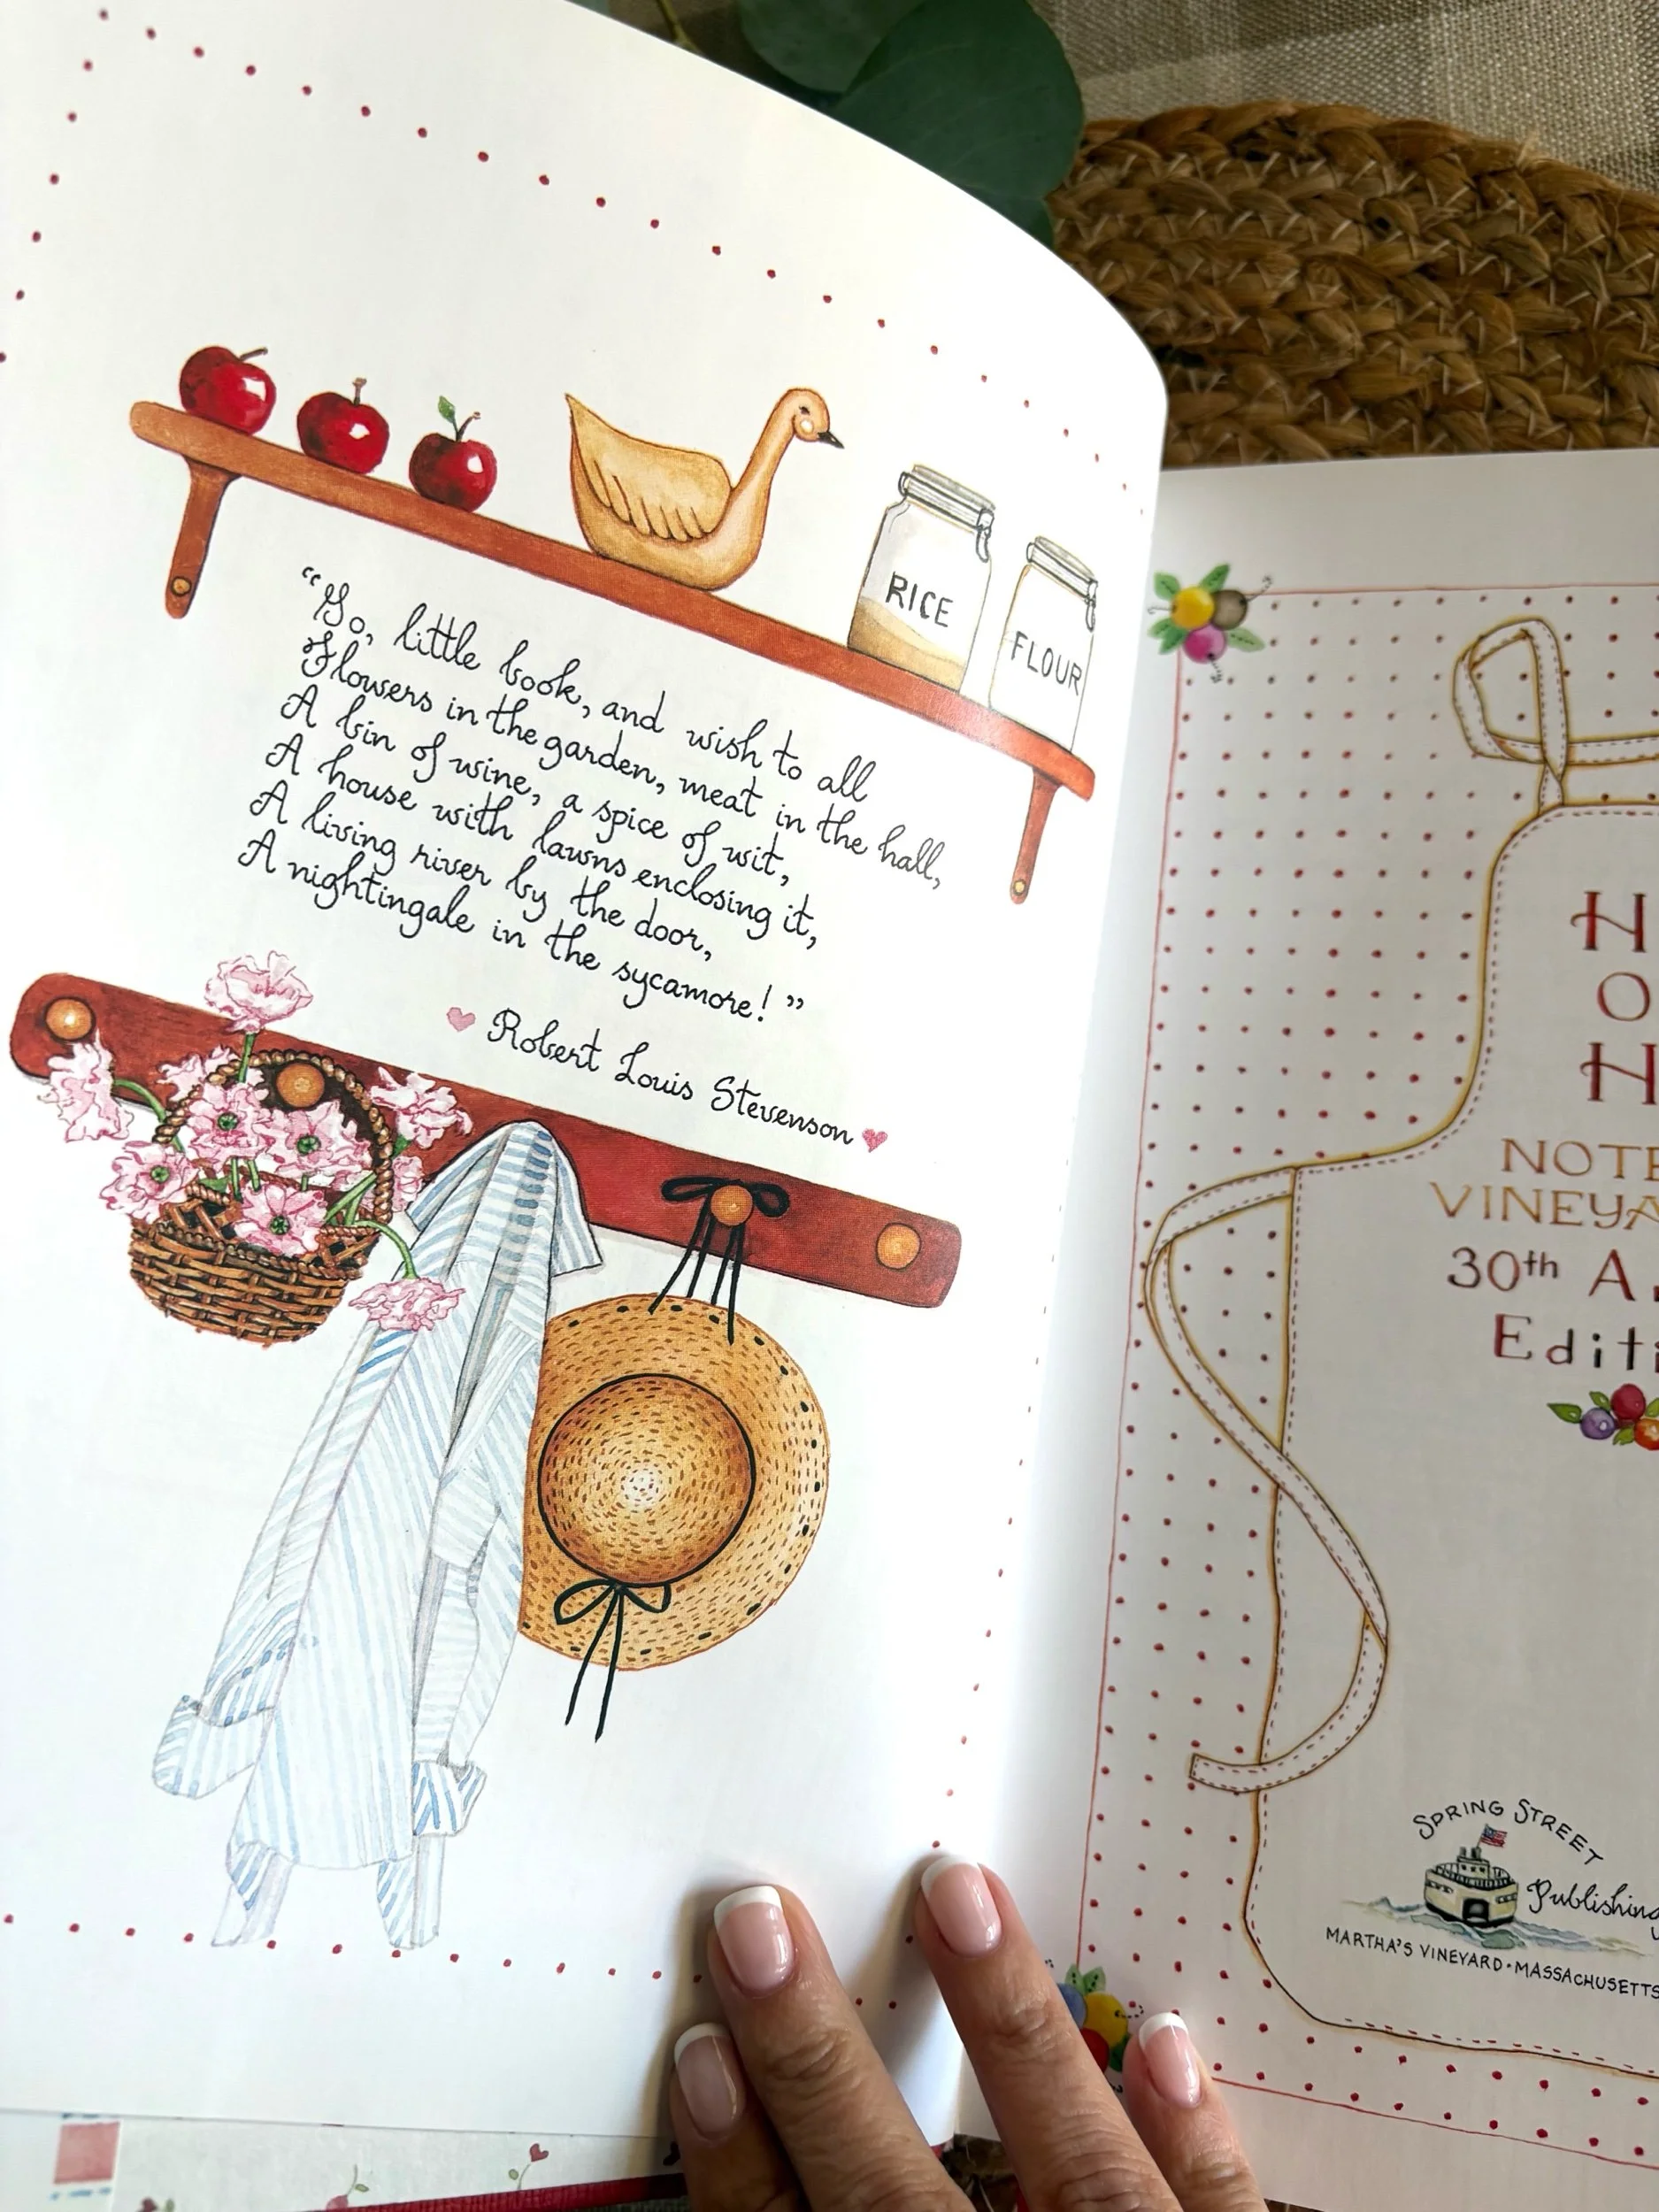 RICE
FLOUR
“Go, little book, and wish to all
Flowers in the garden, meat in the hall,
A bin of wine, a spice of wit,
A house with lawns enclosing it,
A living river by the door,
A nightingale in the sycamore!”
Robert Louis Stevenson
H
O
H
NOTE
VINEYA
30th A
Editi
SPRING STREET
Publishing
MARTHA'S VINEYARD • MASSACHUSETTS